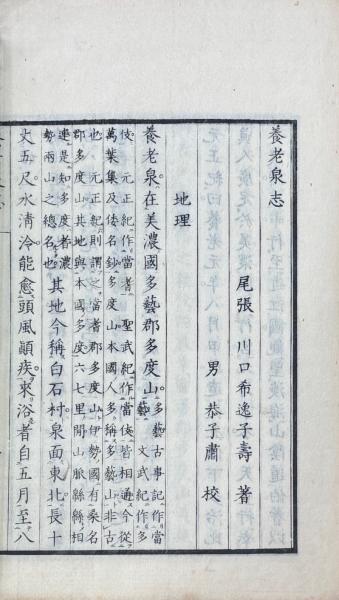 養老泉志
尾張 川口希逸子壽 著
男 恭子肅 校
地理
養老泉在美濃國多藝郡多度山多藝古事記作當
藝文武紀作多
伎元正紀作當耆聖武紀作當伎皆相通今從
萬葉集及倭名鈔多度山本國人多稱多藝山非古
也元正紀則謂之當耆郡多度山伊勢國有桑名
郡多度山其地與本國多度六七里間山脈緜緜相
連是知多度者濃
勢兩山之總名也其地今稱白石村泉面東北長十
丈五尺水清冷能愈頭風顚疾來浴者自五月至八